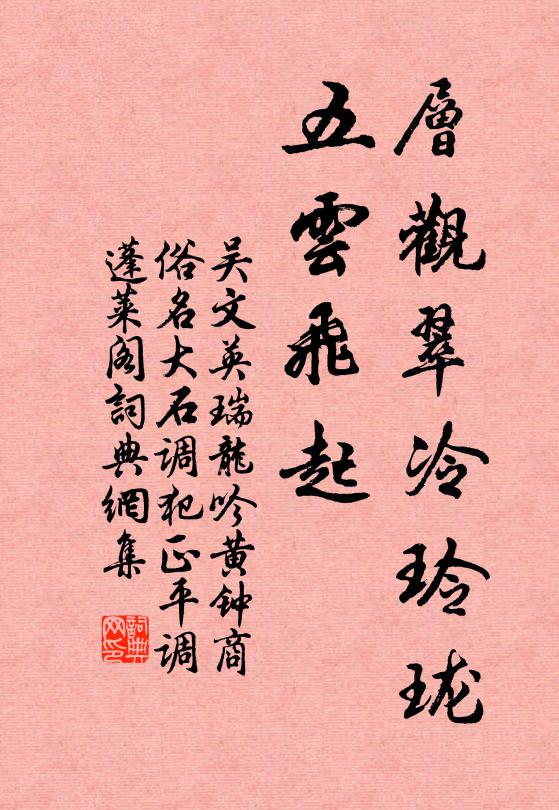 層觀翠冷玲瓏
五雲飛起
吴文英瑞龍吟黄钟商
俗名大石调犯正平调
蓬莱阁詞典網集
詞典网印